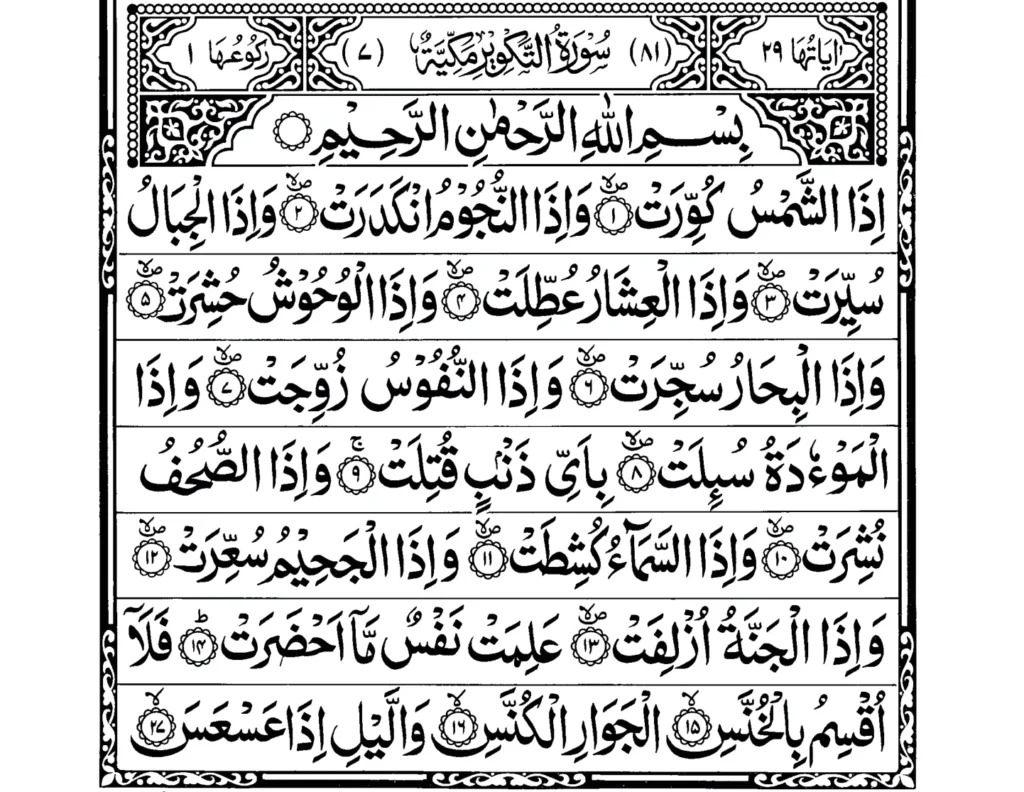 اٰيَاتُهَا ٢٩ (٨١) سُوْرَةُ التَّكْوِيْرِ مَكِّيَّةٌ (٧) رُكُوْعُهَا ١
بِسْمِ اللهِ الرَّحْمٰنِ الرَّحِيْمِ
اِذَا الشَّمْسُ كُوِّرَتْ ۙ‏﴿۱﴾ وَاِذَا النُّجُوْمُ انْكَدَرَتْ ۙ‏﴿۲﴾ وَاِذَا الْجِبَالُ
سُيِّرَتْ ۙ‏﴿۳﴾ وَاِذَا الْعِشَارُ عُطِّلَتْ ۙ‏﴿۴﴾ وَاِذَا الْوُحُوْشُ حُشِرَتْ ۙ‏﴿۵﴾
وَاِذَا الْبِحَارُ سُجِّرَتْ ۙ‏﴿۶﴾ وَاِذَا النُّفُوْسُ زُوِّجَتْ ۙ‏﴿۷﴾ وَاِذَا
الْمَوْءٗدَةُ سُئِلَتْ ۙ‏﴿۸﴾ بِاَىِّ ذَنْۢبٍ قُتِلَتْ ۚ‏﴿۹﴾ وَاِذَا الصُّحُفُ
نُشِرَتْ ۙ‏﴿۱۰﴾ وَاِذَا السَّمَآءُ كُشِطَتْ ۙ‏﴿۱۱﴾ وَاِذَا الْجَحِيْمُ سُعِّرَتْ ۙ‏﴿۱۲﴾
وَاِذَا الْجَنَّةُ اُزْلِفَتْ ۙ‏﴿۱۳﴾ عَلِمَتْ نَفْسٌ مَّاۤ اَحْضَرَتْ ؕ‏﴿۱۴﴾ فَلَاۤ
اُقْسِمُ بِالْخُنَّسِ ۙ‏﴿۱۵﴾ الْجَوَارِ الْكُنَّسِ ۙ‏﴿۱۶﴾ وَالَّيْلِ اِذَا عَسْعَسَ ۙ‏﴿۲۷﴾